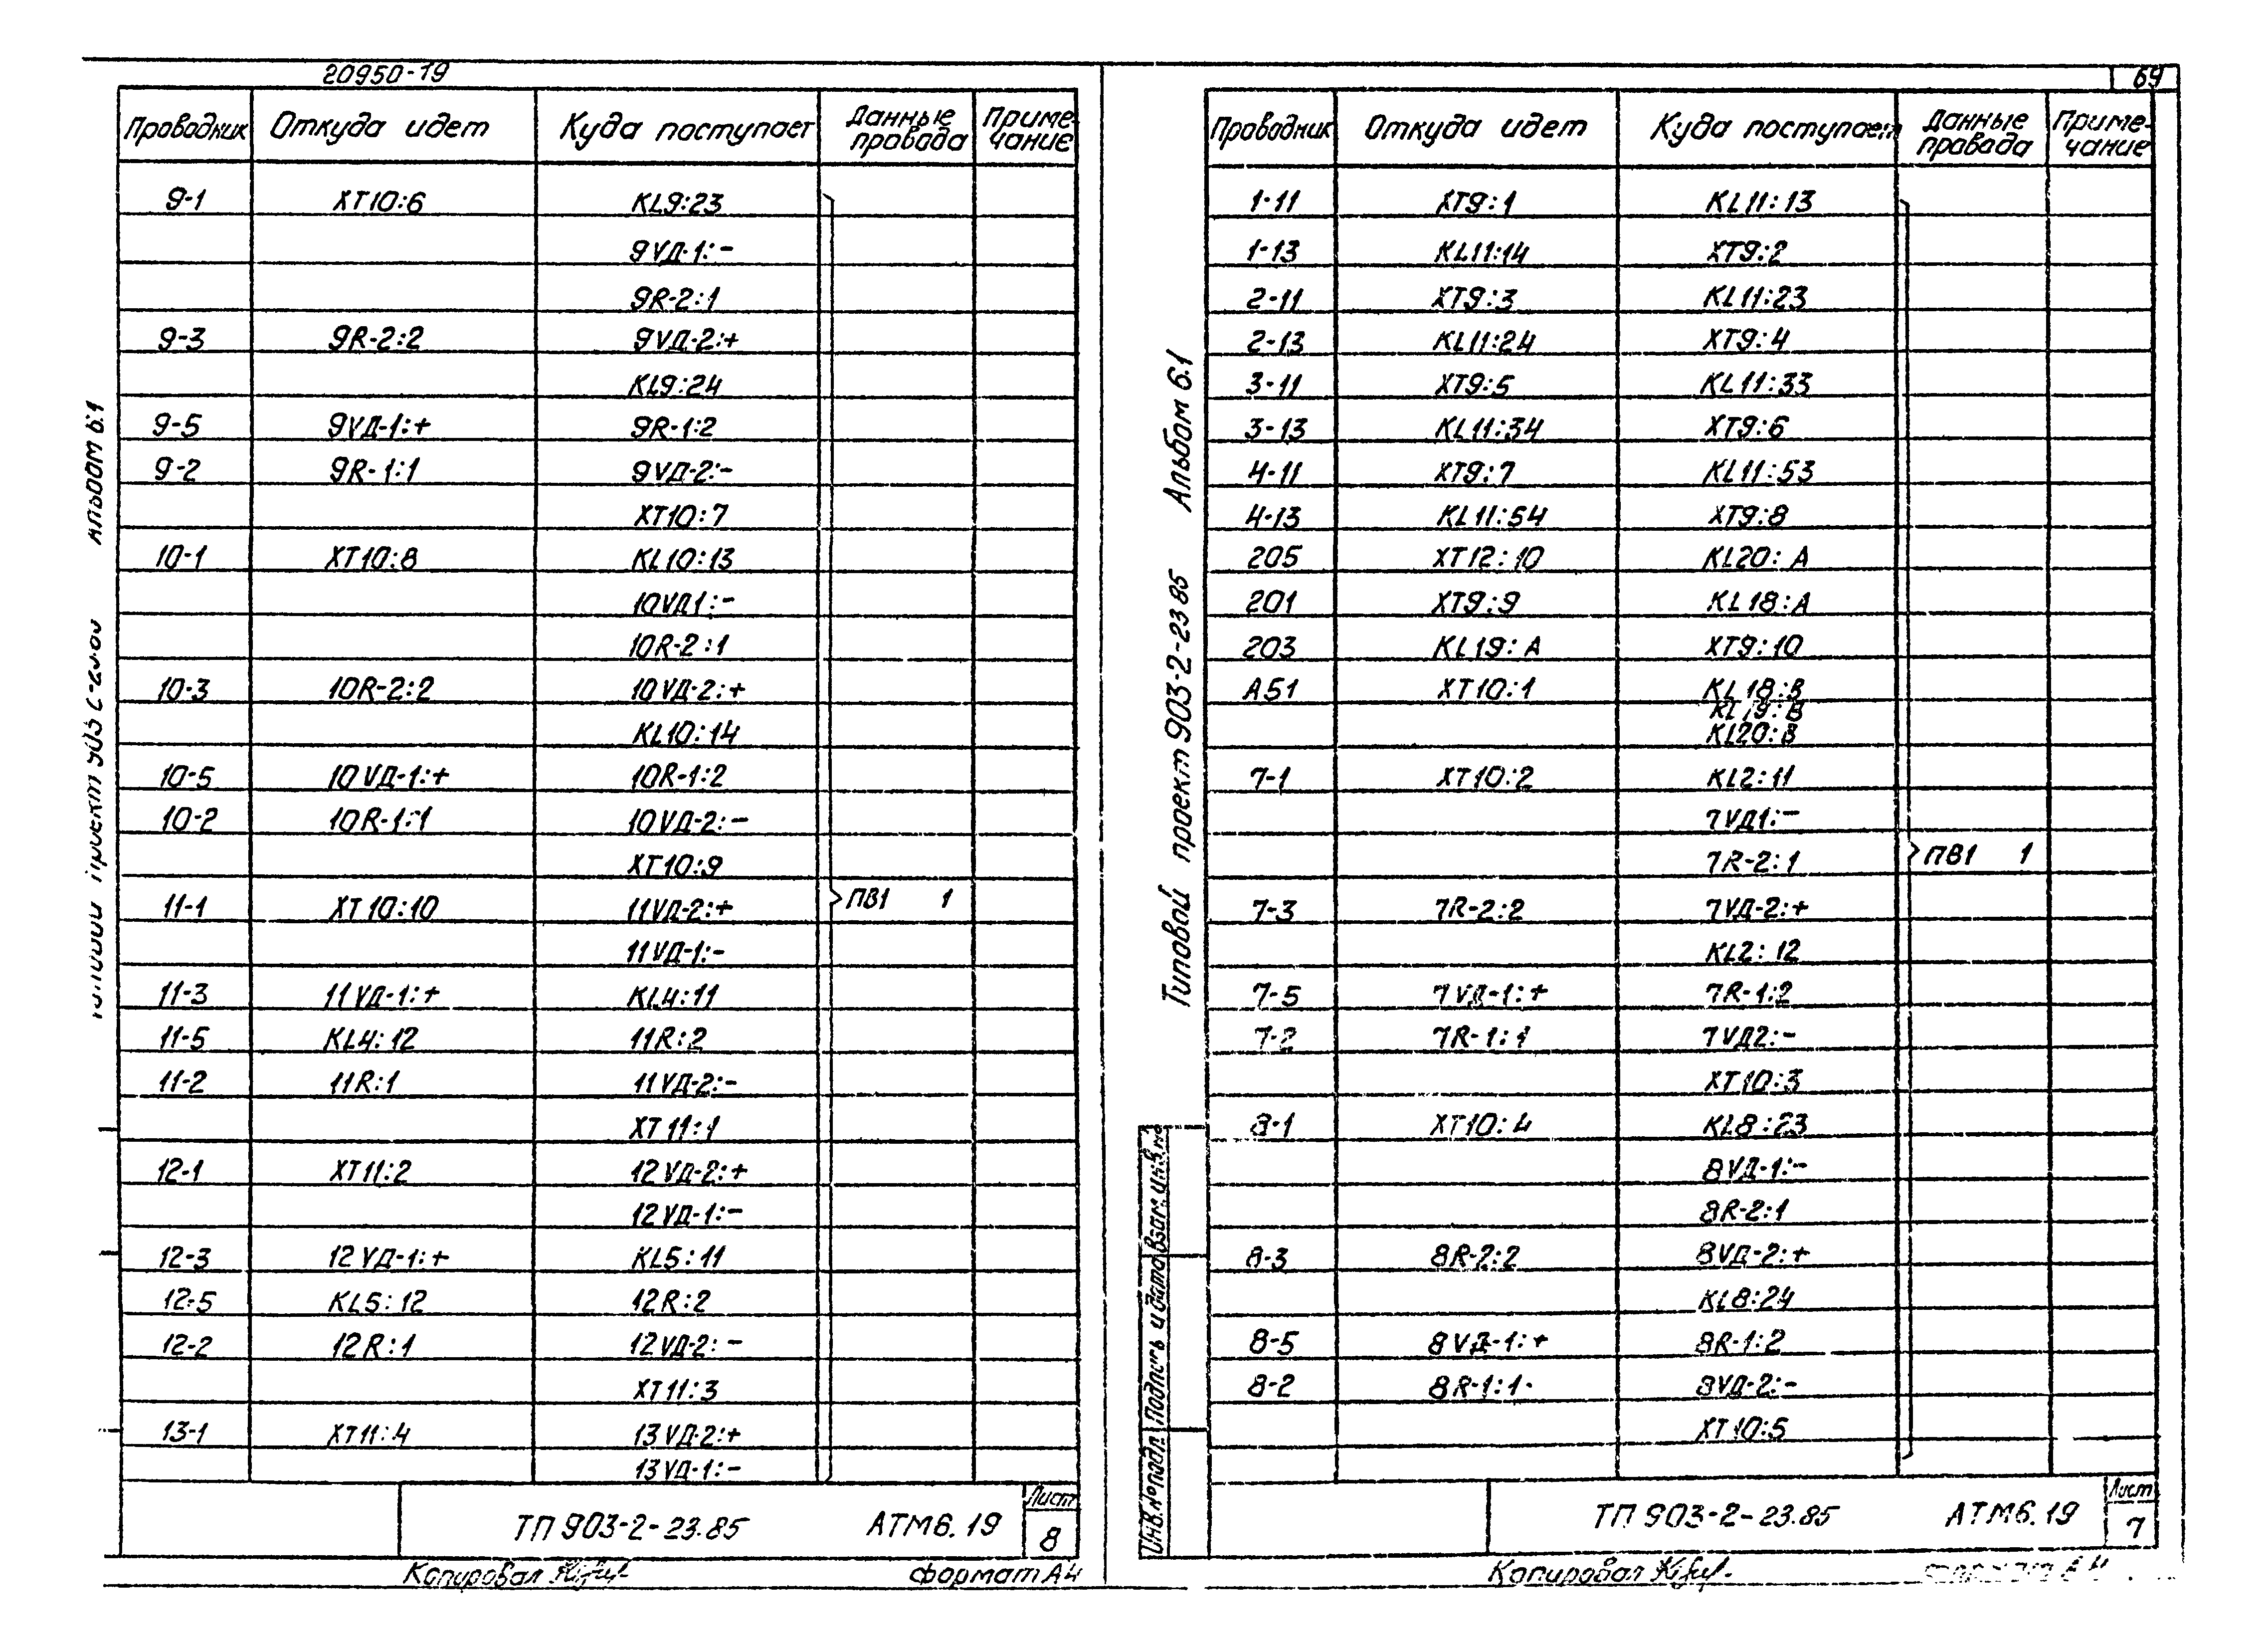 20950-19
Проводник Откуда идет Куда поступает Данные провода Примечание
9-1 XT10:6 KL9:23
9VД-1:-
9R-2:1
9-3 9R-2:2 9VД-2:+
KL9:24
9-5 9VД-1:+ 9R-1:2
9-2 9R-1:1 9VД-2:-
XT10:7
10-1 XT10:8 KL10:13
10VД1:-
10R-2:1
10-3 10R-2:2 10VД-2:+
KL10:14
10-5 10VД-1:+ 10R-1:2
10-2 10R-1:1 10VД-2:-
XT10:9
11-1 XT10:10 11VД-2:+ ПВ1 1
11VД-1:-
11-3 11VД-1:+ KL4:11
11-5 KL4:12 11R:2
11-2 11R:1 11VД-2:-
XT11:1
12-1 XT11:2 12VД-2:+
12VД-1:-
12-3 12VД-1:+ KL5:11
12-5 KL5:12 12R:2
12-2 12R:1 12VД-2:-
XT11:3
13-1 XT11:4 13VД-2:+
13VД-1:-
ТП 903-2-23.85 АТМ6.19 Лист 8
Копировал
формат А4
69
Альбом 6.1
Типовой проект 903-2-23 85
Проводник Откуда идет Куда поступает Данные провода Примечание
1-11 XT9:1 KL11:13
1-13 KL11:14 XT9:2
2-11 XT9:3 KL11:23
2-13 KL11:24 XT9:4
3-11 XT9:5 KL11:33
3-13 KL11:34 XT9:6
4-11 XT9:7 KL11:53
4-13 KL11:54 XT9:8
205 XT12:10 KL20:A
201 XT9:9 KL18:A
203 KL19:A XT9:10
A51 XT10:1 KL18:B
KL19:B
KL20:B
7-1 XT10:2 KL2:11
7VД1:-
7R-2:1 ПВ1 1
7-3 7R-2:2 7VД-2:+
KL2:12
7-5 7VД-1:+ 7R-1:2
7-2 7R-1:1 7VД2:-
XT10:3
8-1 XT10:4 KL8:23
8VД-1:-
8R-2:1
8-3 8R-2:2 8VД-2:+
KL8:24
8-5 8VД-1:+ 8R-1:2
8-2 8R-1:1 8VД-2:-
XT10:5
Инв.№ подл. Подпись и дата Взам. инв.№
ТП 903-2-23.85 АТМ6.19 Лист 7
Копировал